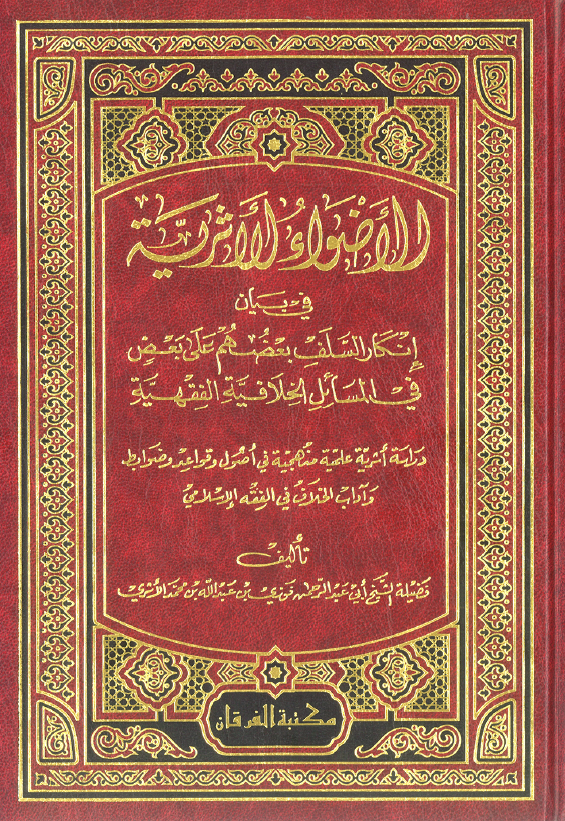 الأَضْوَاءُ الأَثَرِيَّة
في بَيَان
إِنْكَار السَّلَفِ بَعْضُهُمْ عَلَى بَعْضٍ
في المَسَائِلِ الخِلافِيَّةِ الفِقْهِيَّةِ
دراسة أثرية علمية منهجية في أصول وقواعد وضوابط
وآداب الخلاف في الفقه الإسلامي
تأليف
فضيلة الشيخ أبي عبد الرحمن فوزي بن عبد الله بن محمد الأثري
مكتبة الفرقان